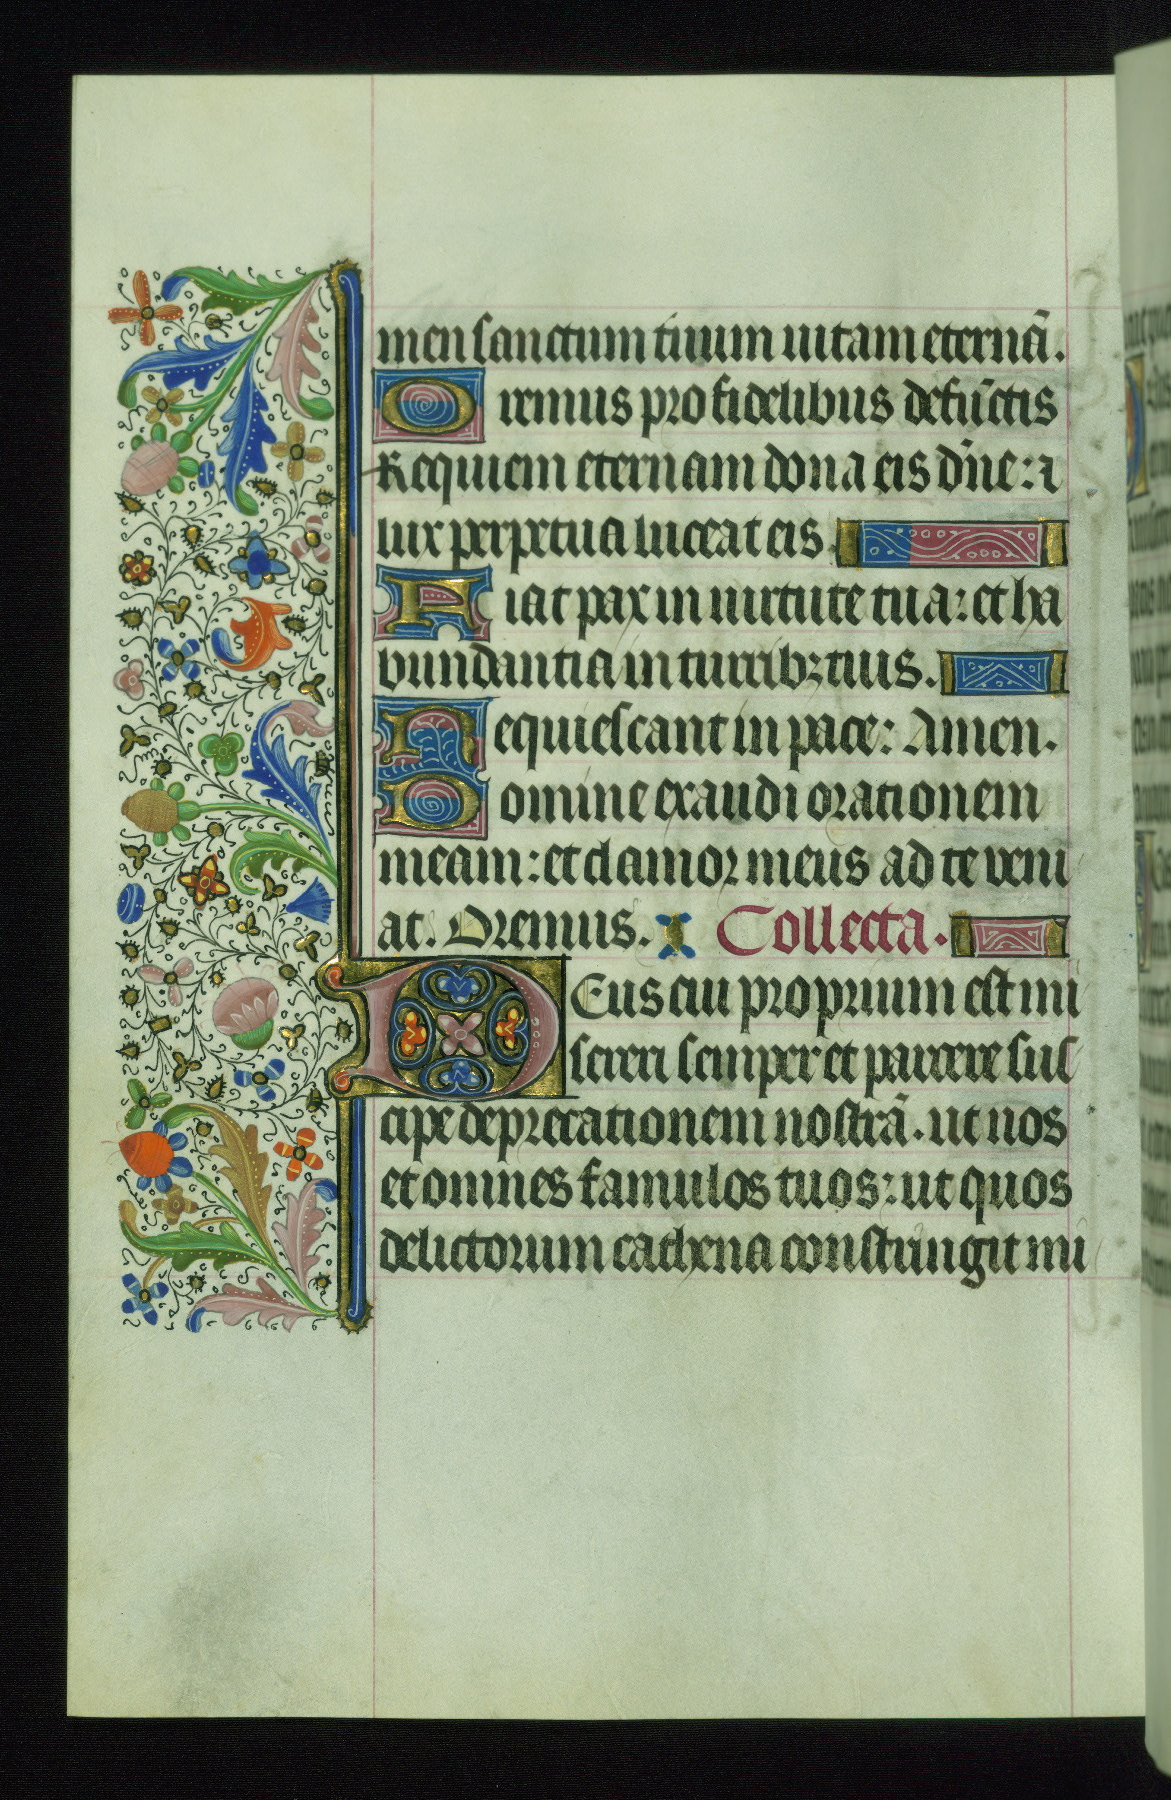 men sanctum tuum uitam eternā.
Oremus pro fidelibus defūctis
Requiem eternam dona eis dn̄e: ⁊
lux perpetua luceat eis.
Fiat pax in uirtute tua: et ha
bundantia in turribꝫ tuis.
Requiescant in pace: Amen.
Domine exaudi orationem
meam: et clamor meus ad te veni
at. Oremus. Collecta.
DEus cui proprium est mi
sereri semper et parcere sus
cipe deprecationem nostrā. ut nos
et omnes famulos tuos: ut quos
delictorum cathena constringit mi